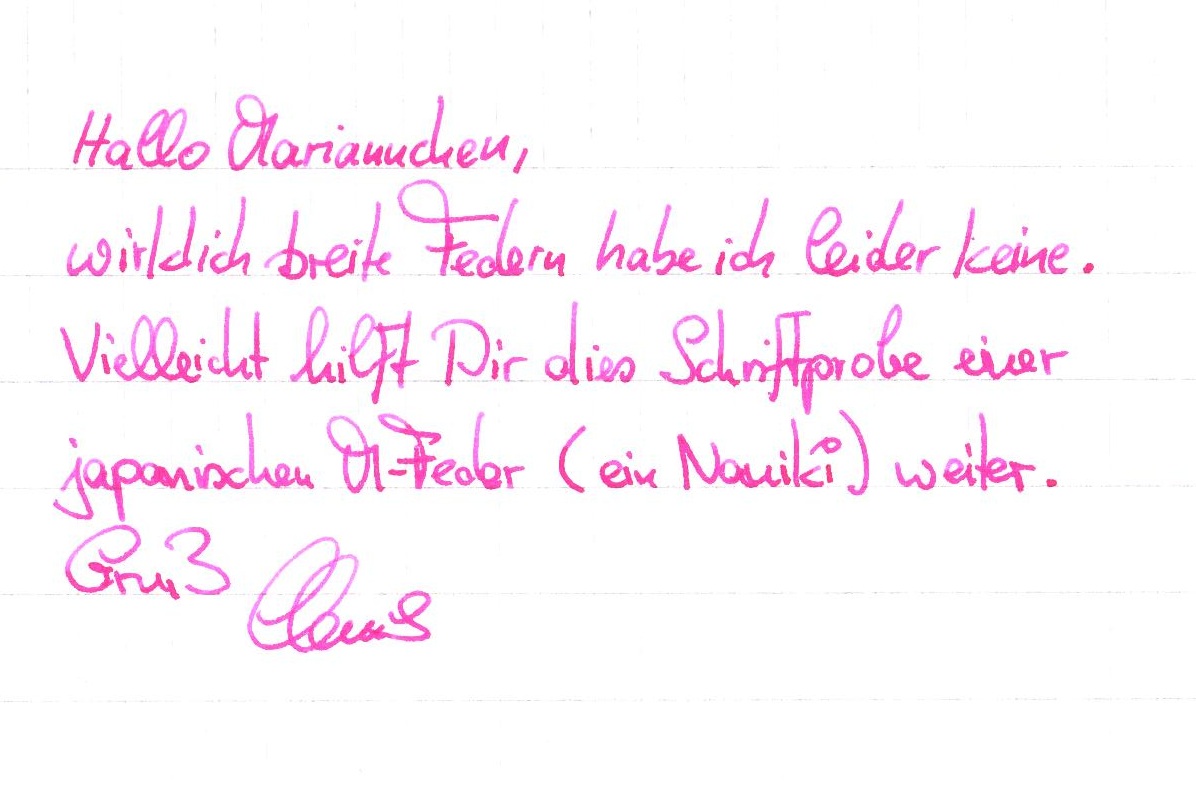 Hallo Mariannchen,
wirklich breite Federn habe ich leider keine.
Vielleicht hilft Dir dies Schriftprobe einer
japanischen M-Feder (ein Namiki) weiter.
Gruß